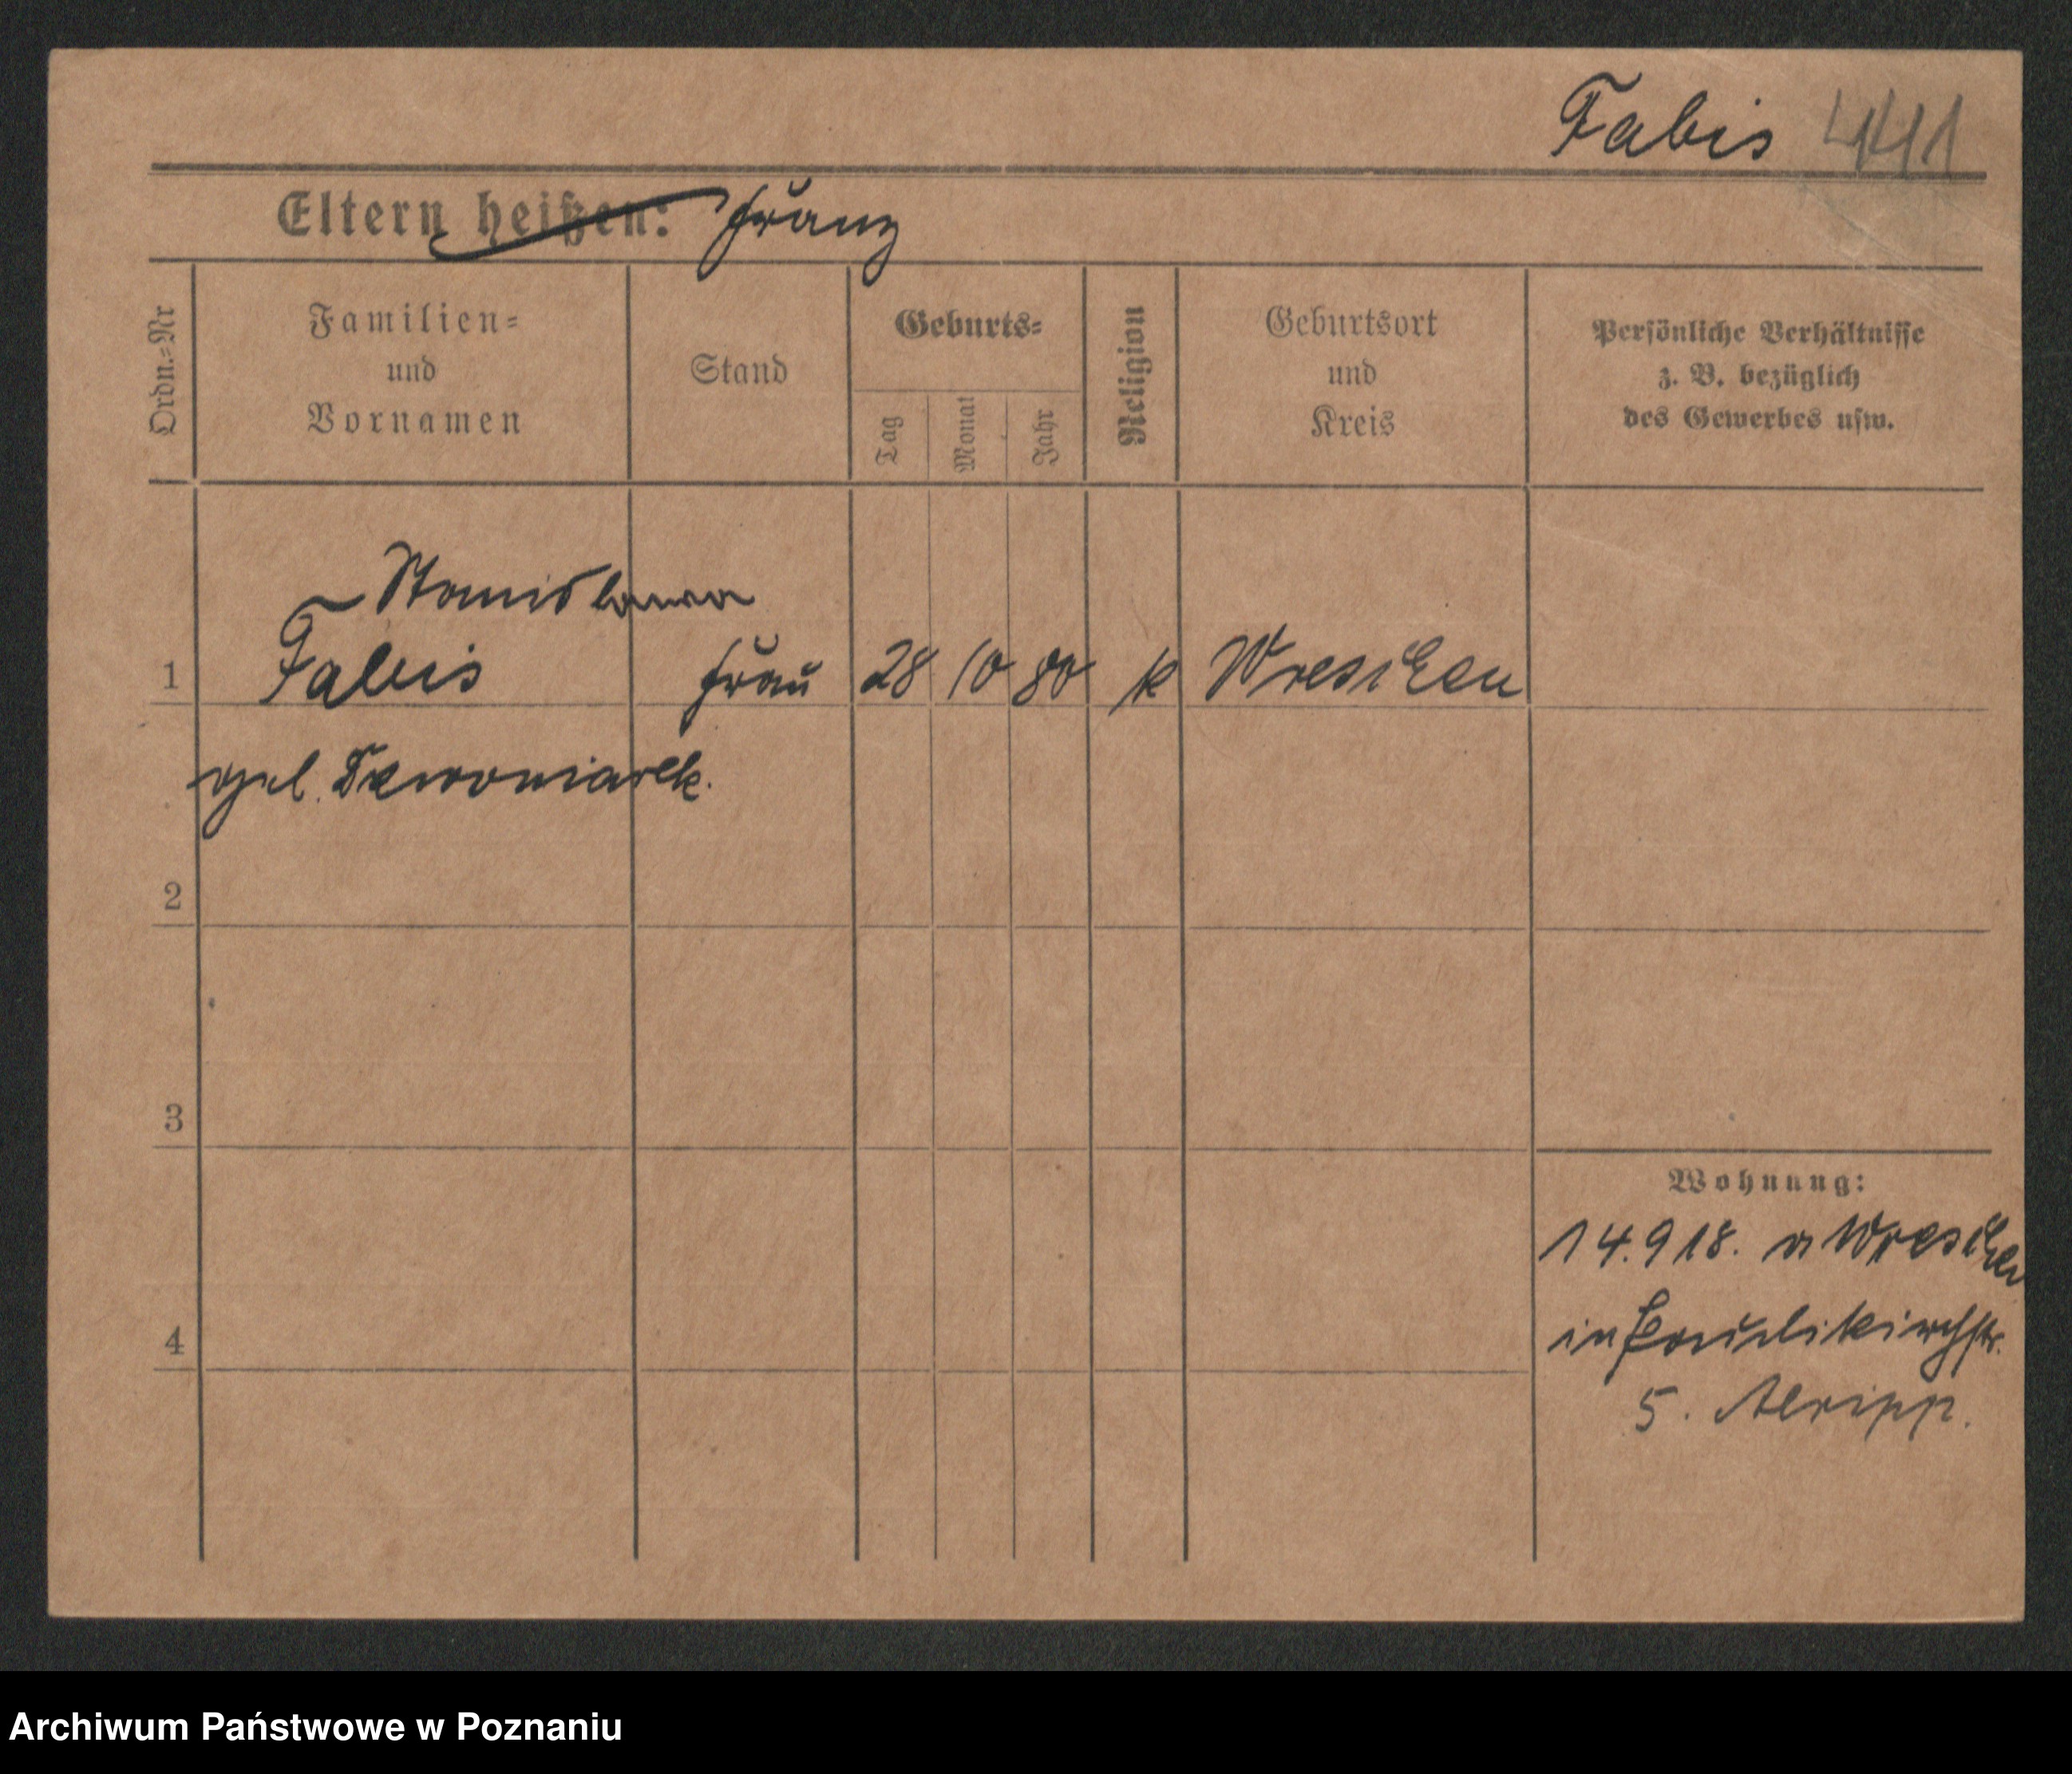 Fabis 441
Eltern heißen: Franz
Ordn.-Nr
Familien-
und
Vornamen
Stand
Geburts-
Tag
Monat
Jahr
Religion
Geburtsort
und
Kreis
Persönliche Verhältnisse
z. B. bezüglich
des Gewerbes usw.
Stanislawa
1 Fabis Frau 28 10 80 k Wreschen
2
3
4
Wohnung:
14.9 18. v Wreschen
in Paulikirchstr.
5.
Archiwum Państwowe w Poznaniu